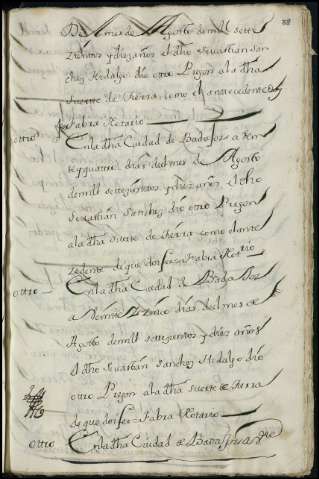 88
Del mes de Agosto de mill sette
zientos y diez años el dho Sevastian San
chez Hidalgo dio otro Pregon a la dha
Suerte de tierra como el antecedente doy
fee Fabra Notario
ottro En la dha Ciudad de Badajoz a bein
te y quatro dias del mes de Agosto
de mill settezientos y diez años el dho
Sevastian Sanchez dio otro Pregon
a la dha Suerte de tierra como el ante
zedente de que doy fee Fabra Notrio
ottro En la dha Ciudad de Bada Joz
a Beinte Y zinco dias del mes de
Agosto de mill settezientos y diez años
el dho Sevastian Sanchez Hidalgo dio
otro Pregon a la dha Suerte de tierra
de que doy fee Fabra Notario
ottro En la dha Ciudad de Bada